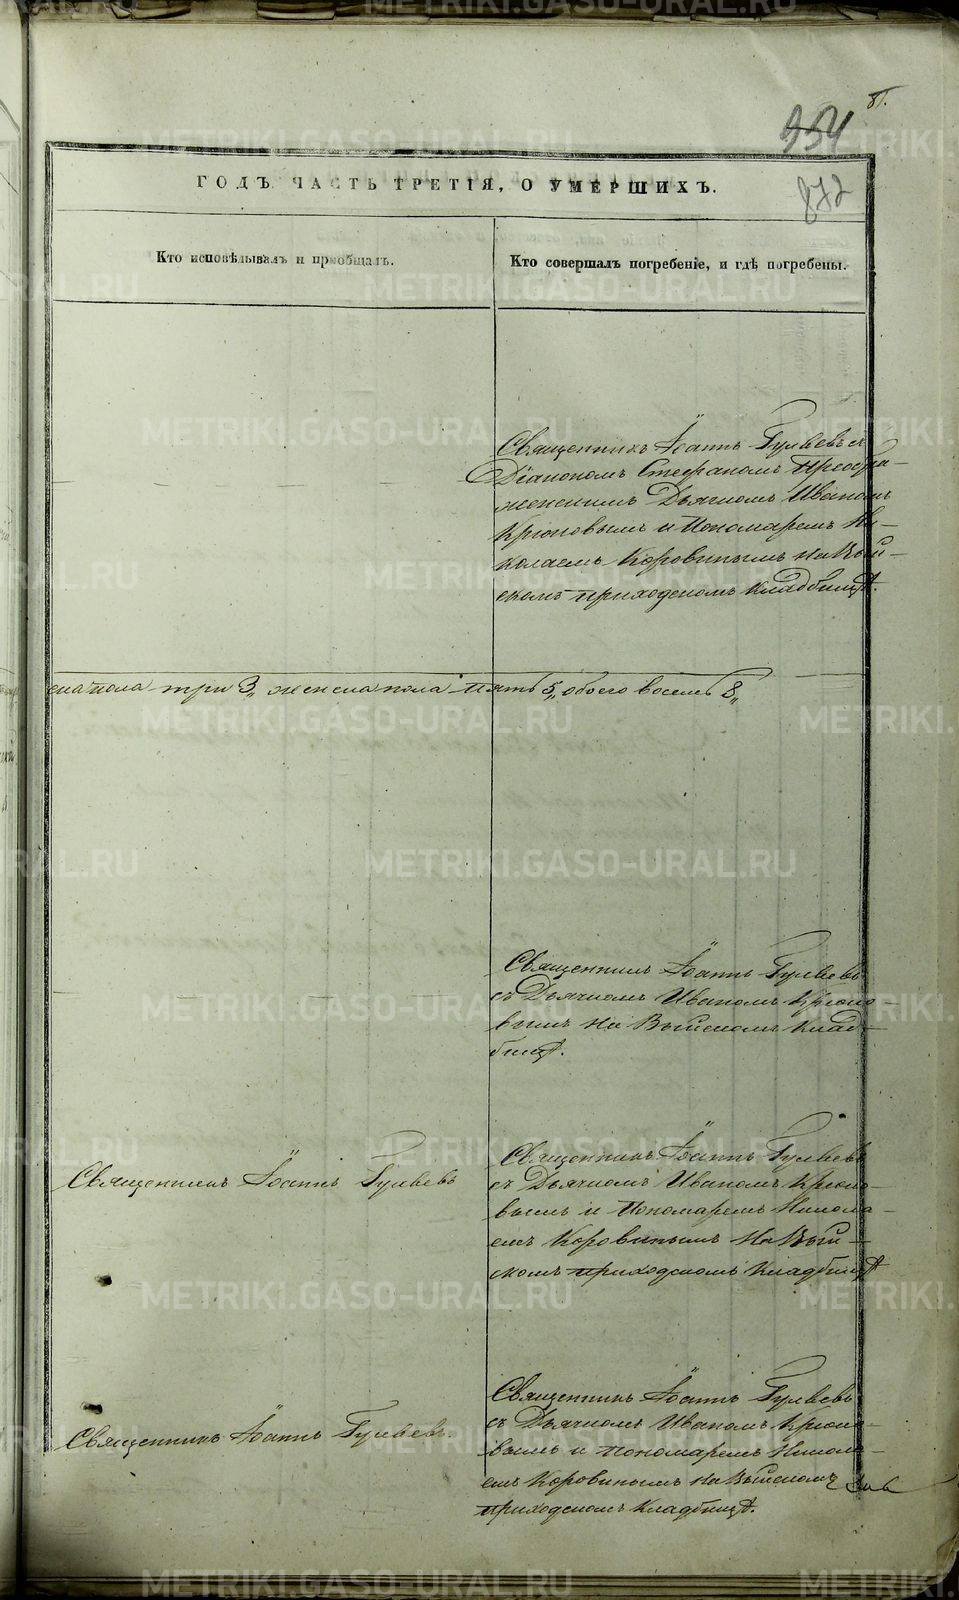 81.
954
872
ГОДЪ ЧАСТЬ ТРЕТІЯ, О УМЕРШИХЪ.
Кто исповѣдывалъ и пріобщалъ.
Кто совершалъ погребеніе, и гдѣ погребены.
Священникъ Іоаннъ Гуляевъ съ
Діакономъ Стефаномъ Преобра-
женскимъ Дьячкомъ Иваномъ
Крюковымъ и Пономаремъ Ни-
колаемъ Коровинымъ на Вый-
скомъ приходскомъ кладбищѣ.
ска пола три 3, женска пола пять 5, обоего восемь 8,
Священникъ Іоаннъ Гуляевъ
съ Дьячкомъ Иваномъ Крюко-
вымъ на Выйскомъ клад-
бищѣ.
Священникъ Іоаннъ Гуляевъ
Священникъ Іоаннъ Гуляевъ
съ Дьячкомъ Иваномъ Крюко-
вымъ и Пономаремъ Никола-
емъ Коровинымъ на Вый-
скомъ приходскомъ кладбищѣ
Священникъ Іоаннъ Гуляевъ.
Священникъ Іоаннъ Гуляевъ
съ Дьячкомъ Иваномъ Крюко-
вымъ и пономаремъ Никола-
емъ Коровинымъ на Выйскомъ
приходскомъ кладбищѣ.
METRIKI.GASO-URAL.RU